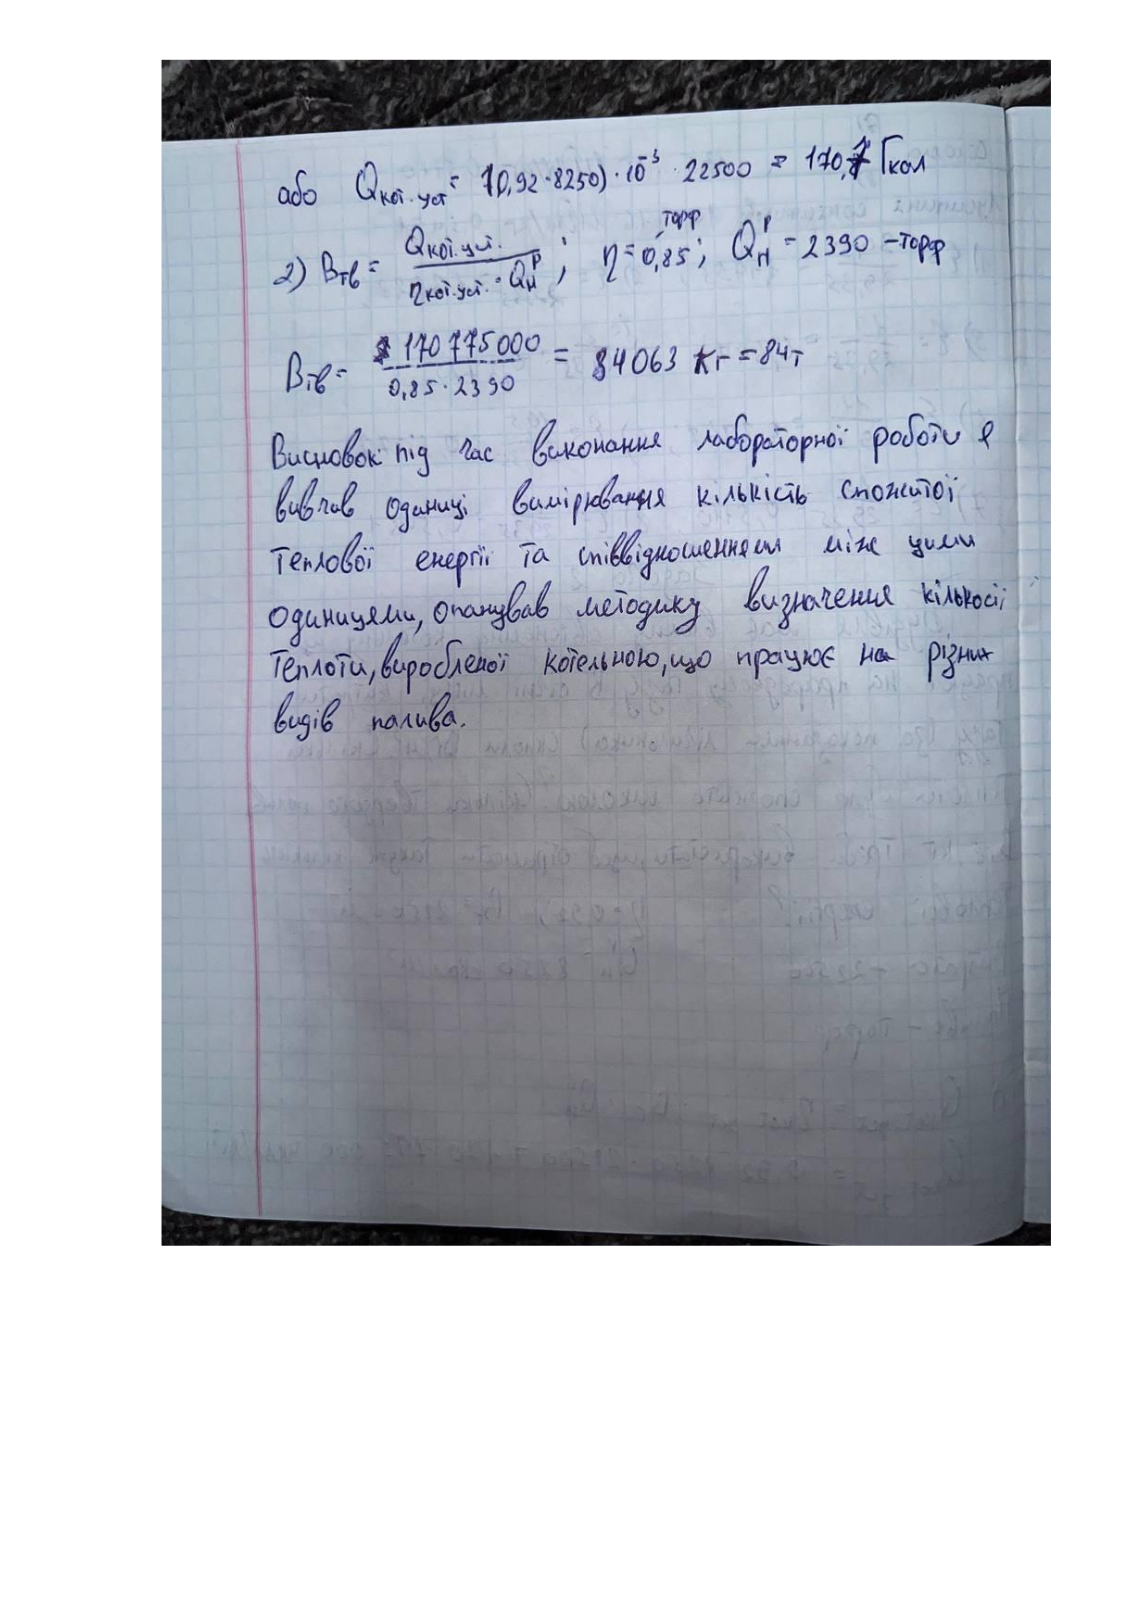 або Qкот.уст = (0,92·8250)·10⁻³ · 22500 = 170,7 Гкал
торф
2) Bтв = Qкот.уст. / ηкот.уст.·Qнᴾ ; η = 0,85; Qнᴾ = 2390 – торф
Bтв = 170 775 000 / 0,85·2390 = 84063 кг = 84т
Висновок: під час виконання лабораторної роботи я
вивчав одиниці вимірювання кількість спожитої
теплової енергії та співвідношенням між цими
одиницями, опанував методику визначення кількості
теплоти, виробленої котельною, що працює на різних
видів палива.